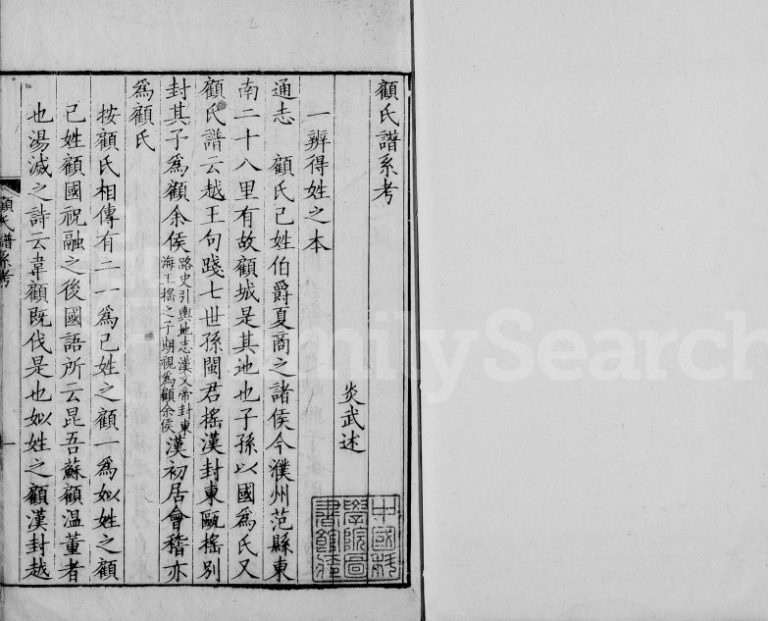 顧氏譜系考
炎武述
一辨得姓之本
通志 顧氏己姓伯爵夏商之諸侯今濮州范縣東
南二十八里有故顧城是其地也子孫以國爲氏又
顧氏譜云越王句踐七世孫閩君搖漢封東甌搖別
封其子爲顧余侯路史引輿地志漢文帝封東海王搖之子期視爲顧余侯漢初居會稽亦
爲顧氏
按顧氏相傳有二一爲己姓之顧一爲姒姓之顧
己姓顧國祝融之後國語所云昆吾蘇顧温董者
也湯滅之詩云韋顧既伐是也姒姓之顧漢封越
顧氏譜系考
一
中國科學院圖書館藏
FamilySearch